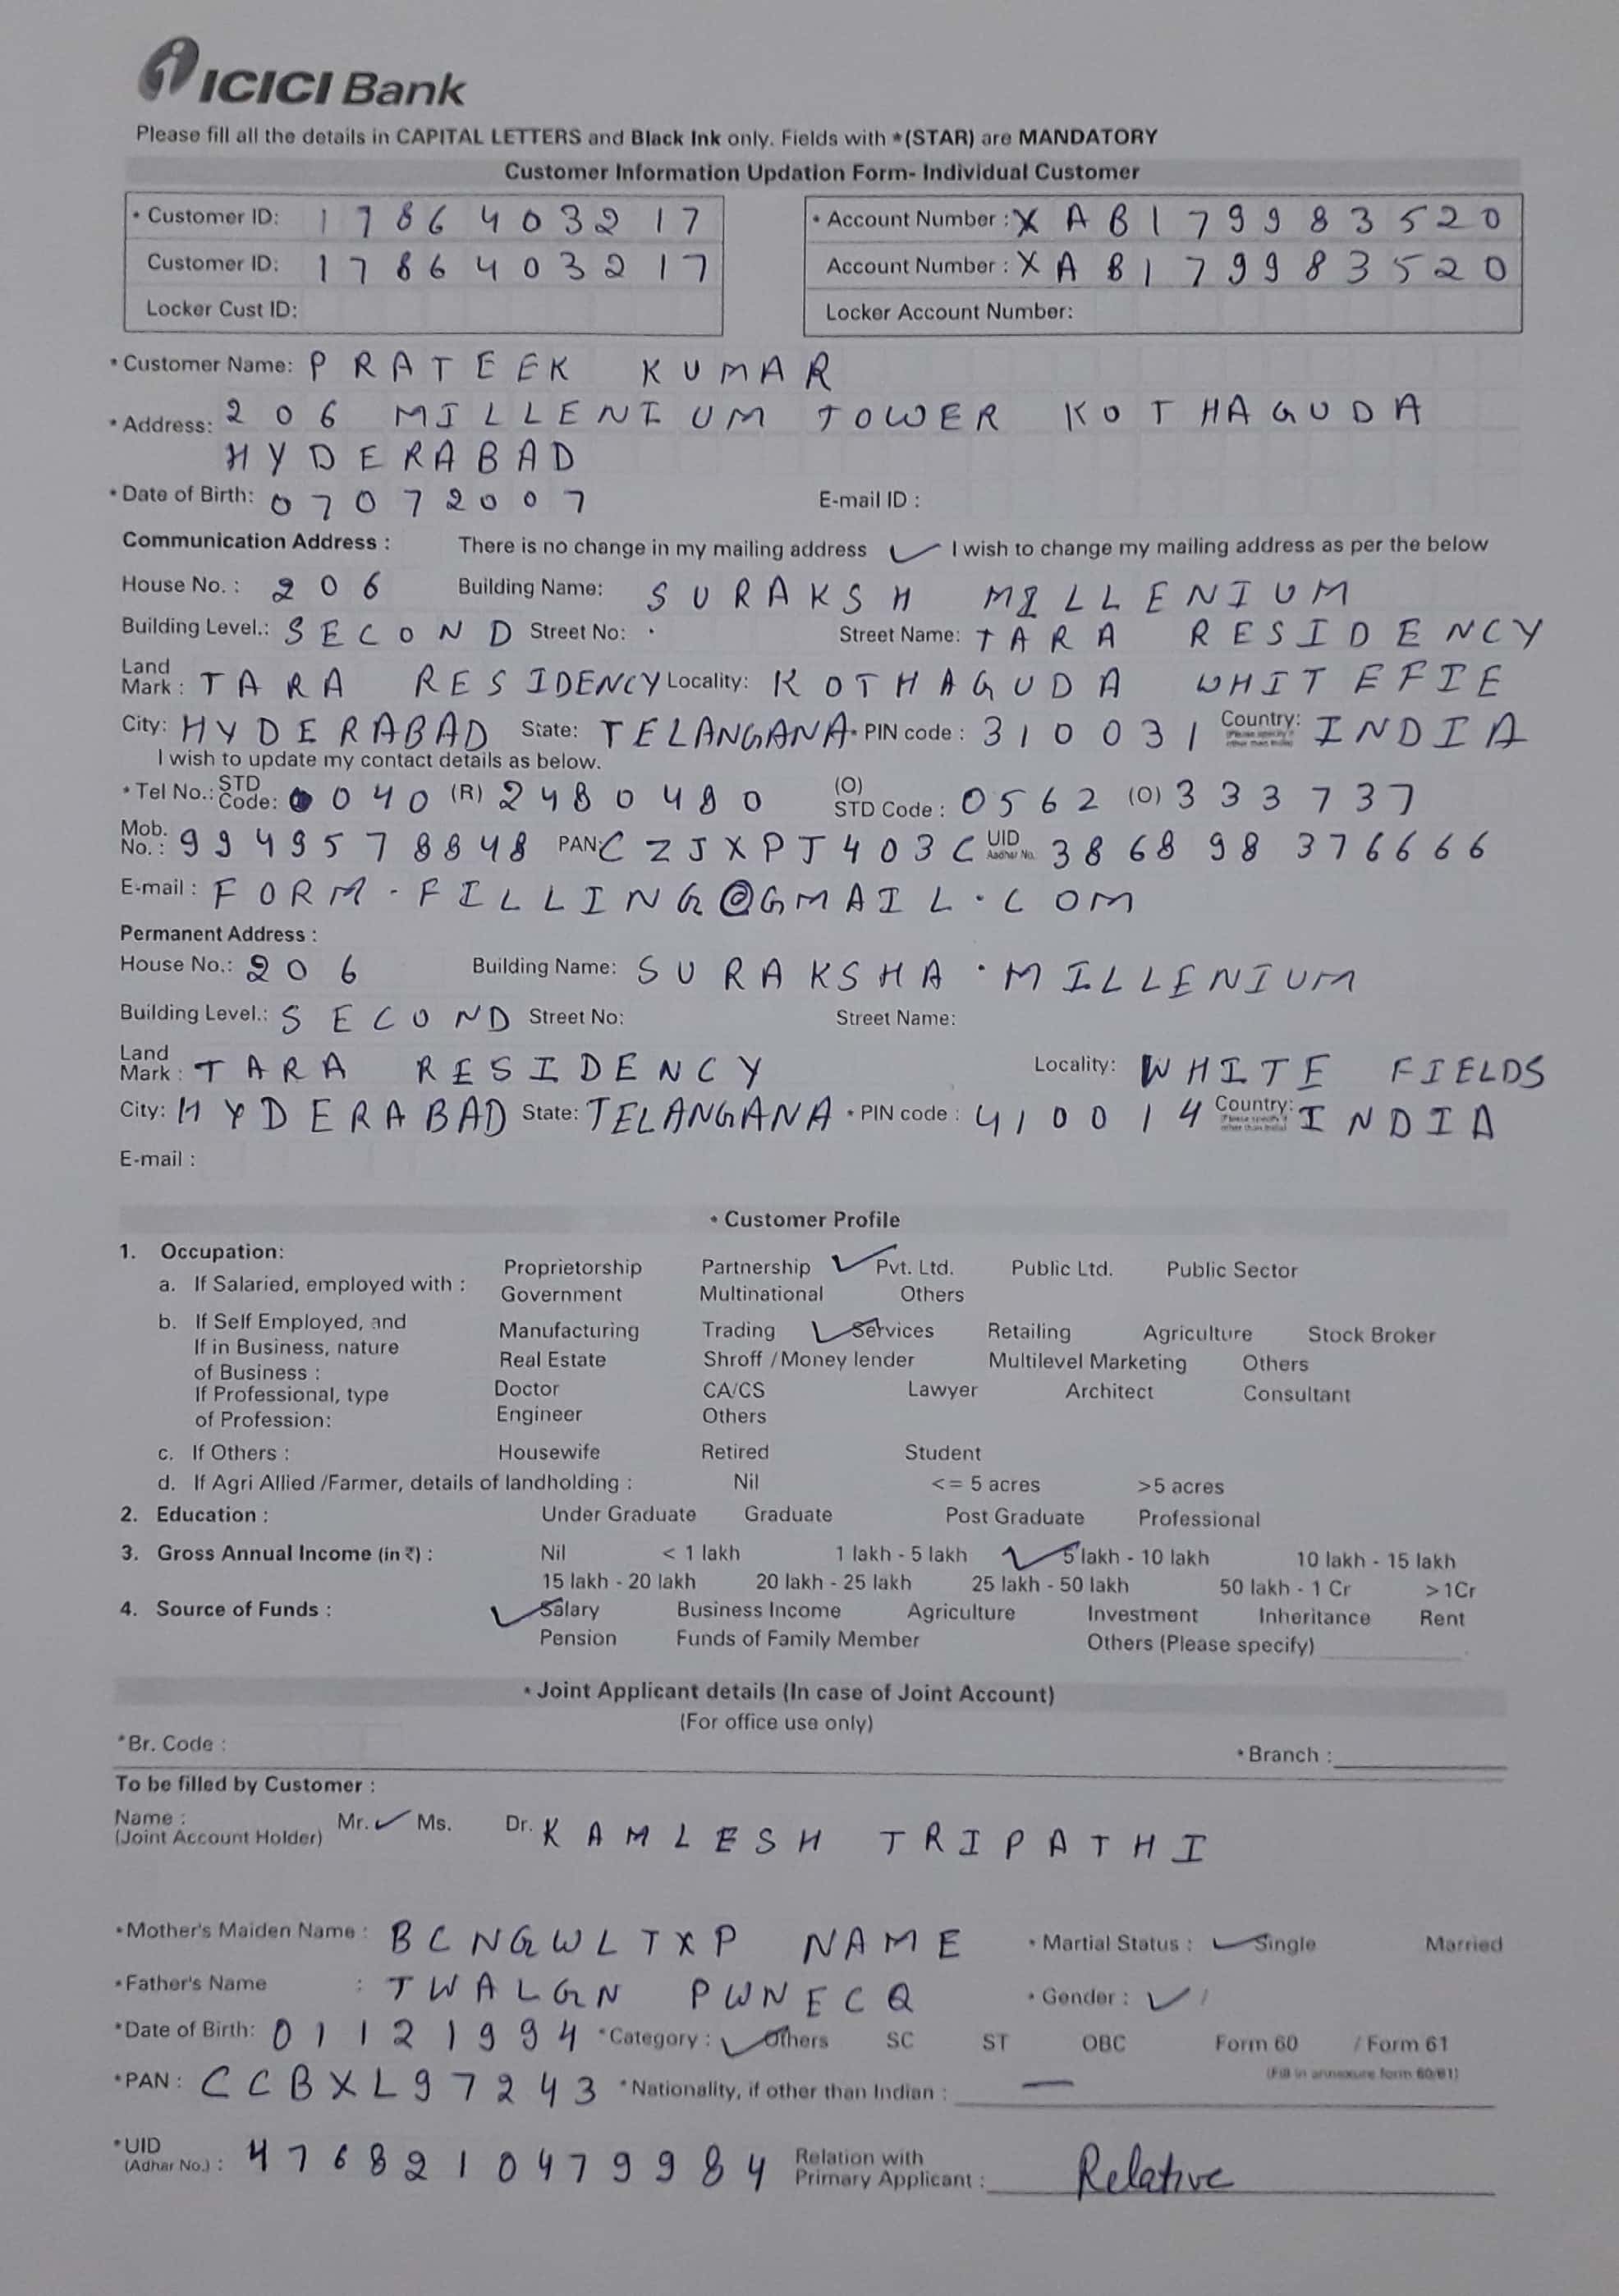 ICICI Bank
Please fill all the details in CAPITAL LETTERS and Black Ink only. Fields with *(STAR) are MANDATORY
Customer Information Updation Form- Individual Customer
* Customer ID: 1786403217 * Account Number : XAB179983520
Customer ID: 1786403217 Account Number : XAB179983520
Locker Cust ID: Locker Account Number:
* Customer Name: PRATEEK KUMAR
* Address: 206 MILLENIUM TOWER KOTHAGUDA
HYDERABAD
* Date of Birth: 07072007 E-mail ID :
Communication Address : There is no change in my mailing address ✓ I wish to change my mailing address as per the below
House No. : 206 Building Name: SURAKSH MILLENIUM
Building Level.: SECOND Street No: Street Name: TARA RESIDENCY
Land Mark : TARA RESIDENCY Locality: KOTHAGUDA WHITEFIE
City: HYDERABAD State: TELANGANA * PIN code : 310031 Country: (Please specify if other than India) INDIA
I wish to update my contact details as below.
* Tel No.: STD Code: 040 (R) 2480480 (O) STD Code : 0562 (O) 333737
Mob. No. : 9949578848 PAN CZJXPJ403C UID Aadhar No. 386898376666
E-mail : FORM.FILLING@GMAIL.COM
Permanent Address :
House No.: 206 Building Name: SURAKSHA MILLENIUM
Building Level.: SECOND Street No: Street Name:
Land Mark : TARA RESIDENCY Locality: WHITE FIELDS
City: HYDERABAD State: TELANGANA * PIN code : 410014 Country: (Please specify if other than India) INDIA
E-mail :
* Customer Profile
1. Occupation:
a. If Salaried, employed with : Proprietorship Partnership ✓ Pvt. Ltd. Public Ltd. Public Sector
Government Multinational Others
b. If Self Employed, and If in Business, nature of Business : Manufacturing Trading ✓ Services Retailing Agriculture Stock Broker
Real Estate Shroff /Money lender Multilevel Marketing Others
If Professional, type of Profession: Doctor CA/CS Lawyer Architect Consultant
Engineer Others
c. If Others : Housewife Retired Student
d. If Agri Allied /Farmer, details of landholding : Nil <= 5 acres >5 acres
2. Education : Under Graduate Graduate Post Graduate Professional
3. Gross Annual Income (in ₹) : Nil < 1 lakh 1 lakh - 5 lakh ✓ 5 lakh - 10 lakh 10 lakh - 15 lakh
15 lakh - 20 lakh 20 lakh - 25 lakh 25 lakh - 50 lakh 50 lakh - 1 Cr >1Cr
4. Source of Funds : ✓ Salary Business Income Agriculture Investment Inheritance Rent
Pension Funds of Family Member Others (Please specify)
* Joint Applicant details (In case of Joint Account)
(For office use only)
*Br. Code : * Branch :
To be filled by Customer :
Name : (Joint Account Holder) Mr. ✓ Ms. Dr. KAMLESH TRIPATHI
*Mother's Maiden Name : BCNGWLTXP NAME * Martial Status : ✓ Single Married
*Father's Name : TWALGN PWNECQ * Gender : ✓ /
*Date of Birth: 01121994 *Category : ✓ Others SC ST OBC Form 60 / Form 61
(Fill in annexure form 60/61)
*PAN : CCBXL97243 *Nationality, if other than Indian : —
*UID (Adhar No.) : 4768210479984 Relation with Primary Applicant : Relative